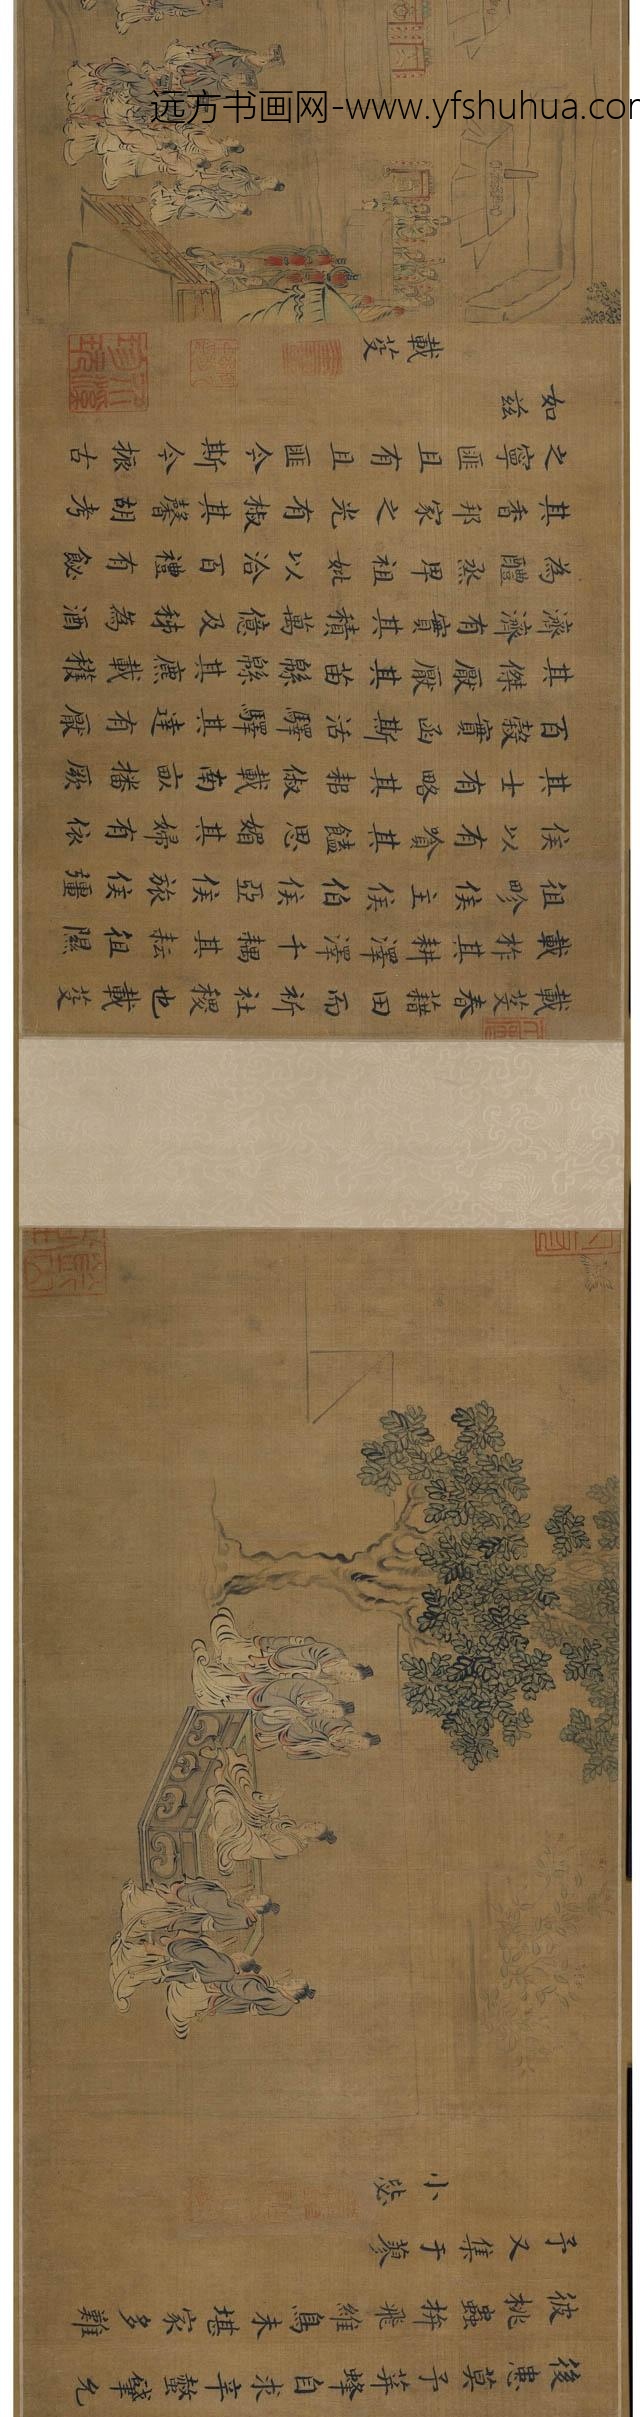 远方书画网-www.yfshuhua.co
後患莫予荓蜂自求辛螫肇允
彼桃蟲拚飛維鳥未堪家多難
予又集于蓼
小毖
載芟春藉田而祈社稷也載芟
載柞其耕澤澤千耦其耘徂隰
徂畛侯主侯伯侯亞侯旅侯彊
侯以有嗿其饁思媚其婦有依
其士有略其耜俶載南畝播厥
百穀實函斯活驛驛其達有厭
其傑厭厭其苗緜緜其麃載穫
濟濟有實其積萬億及秭為酒
為醴烝畀祖妣以洽百禮有飶
其香邦家之光有椒其馨胡考
之寧匪且有且匪今斯今振古
如茲
載芟